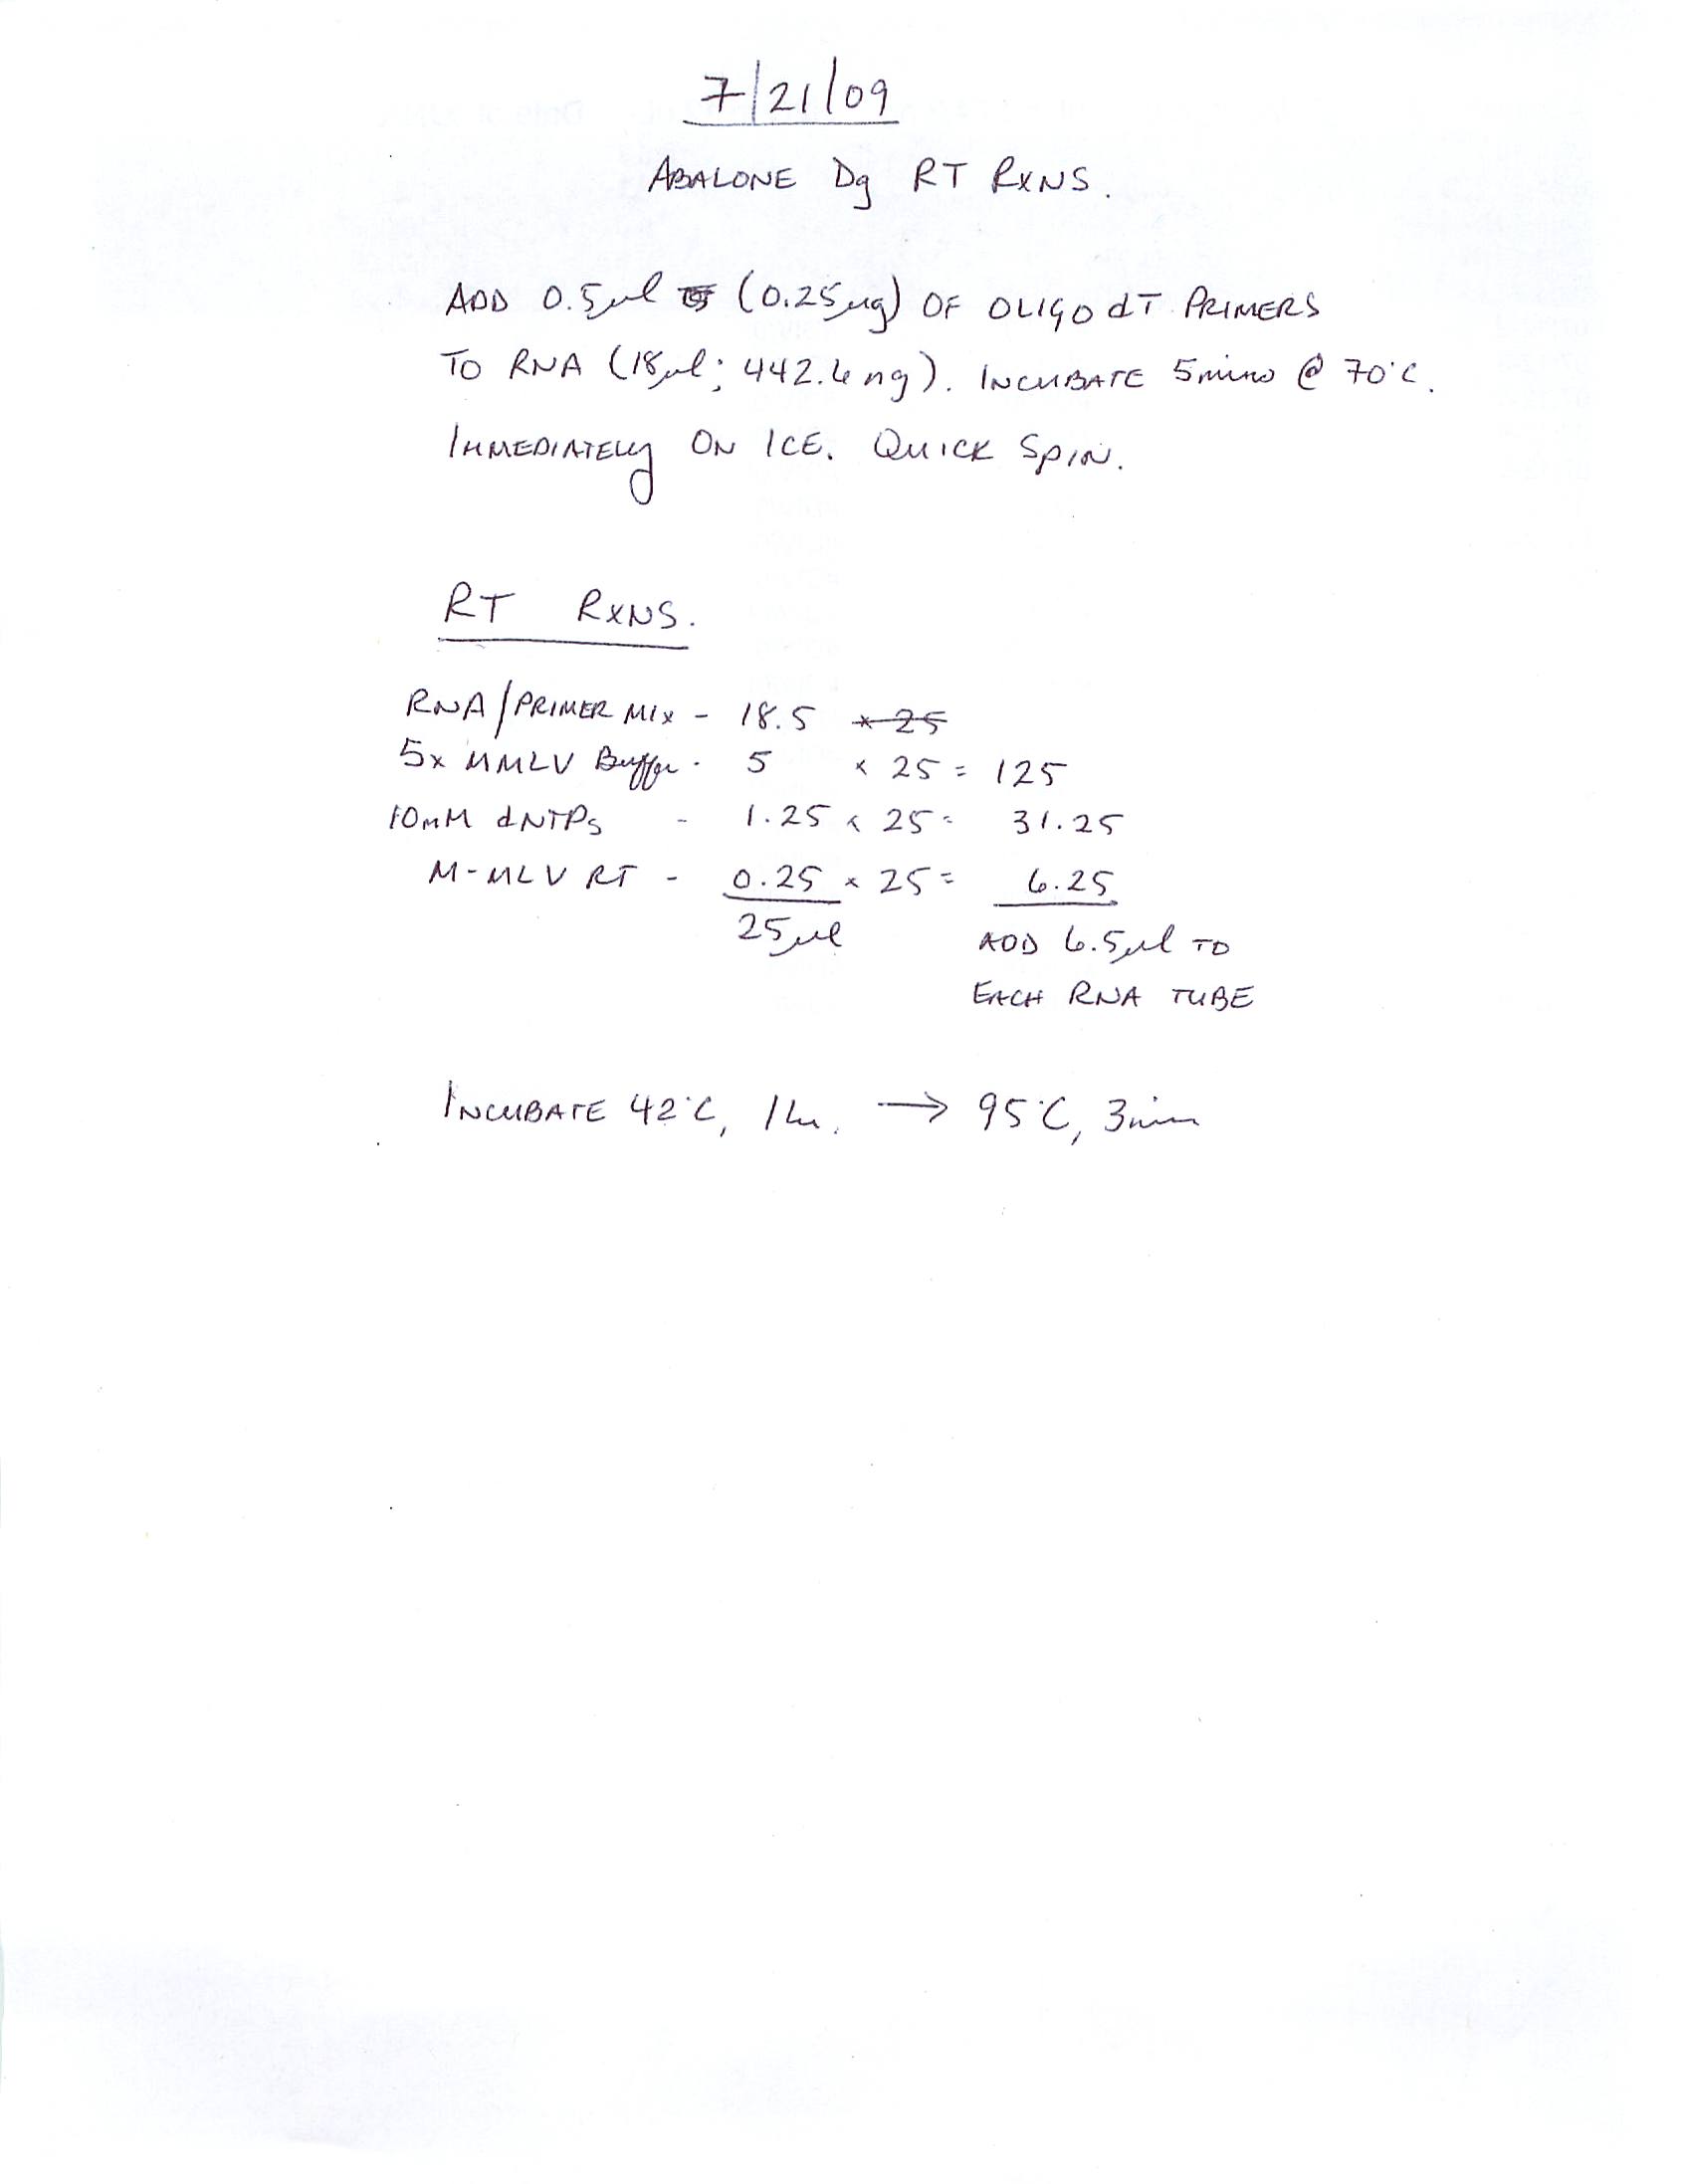 7/21/09
ABALONE Dg RT RXNS.
ADD 0.5µl (0.25µg) OF OLIGO dT PRIMERS
TO RNA (18µl; 442.6ng). INCUBATE 5mins @ 70°C.
IMMEDIATELY ON ICE. QUICK SPIN.
RT RXNS.
RNA/PRIMER MIX - 18.5 x 25
5x MMLV Buffer - 5 x 25 = 125
10mM dNTPs - 1.25 x 25 = 31.25
M-MLV RT - 0.25 x 25 = 6.25
25µl ADD 6.5µl TO
EACH RNA TUBE
INCUBATE 42°C, 1hr. → 95°C, 3min